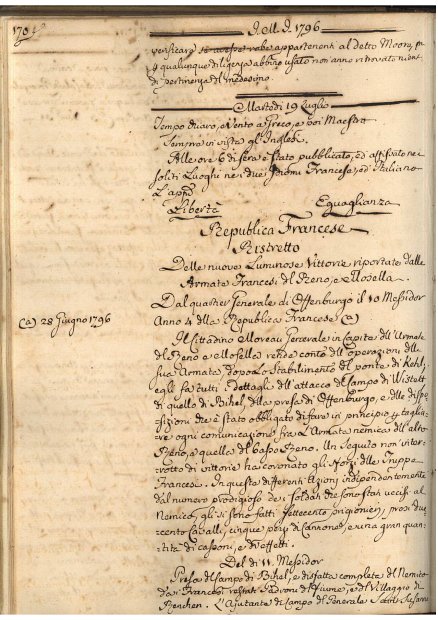 1796
verificare se avesse robe appartenenti al detto Moon, 
qualunque diligenza abbino usato non anno ritrovato nient
di pertinenza del medesimo.
Martedi 19 Luglio
Tempo chiaro, e Vento a Greco, e poi Maestro
Sempre in vista gl'Inglesi.
Alle ore 6 di sera è stato pubblicato, ed affissato nei
soliti Luoghi nei due Idiomi Francese, ed Italiano
L'app.
Libertè Eguaglianza
Republica Francese
Ristretto
Delle nuove Luminose Vittorie riportate dalle
Armate Francesi del Reno, e Mosella.
Dal quartier Generale di Offenburgo il 10 Messidor
(a) 28 Giugno 1796
Anno 4 della Republica Francese (a)
Il Cittadino Moreau Generale in Capite dell'Armate
del Reno e Mosella rende conto dell'operazioni della
sua Armata dopo lo Stabilimento del ponte di Kehl,
egli fa tutti i dettagli dell'attacco del Campo di Wistett
di quello di Bihel, della presa di Offenburgo, e delle dispo
sizioni che è stato obbligato di fare in principio p tagliare
ogni comunicazione fra L'Armata nemica dell'alto
Reno, e quella del basso Reno. Un Seguito non inter-
rotto di vittorie ha coronato gli sforzi delle Truppe
Francesi. In queste differenti Azioni independentemente
dal numero prodigioso dei Soldati che sono stati uccisi al
Nemico, gli si sono fatti settecento prigionieri, presi du
cento Cavalli, cinque pezzi di Cannone, e una gran quan-
tità di cassoni, ed effetti.
Del di 11 Messidor
Presa del Campo di Bihel, e disfatta completa del Nemico
da i Francesi restati Padroni del fiume, e del Villaggio di
Renchen. L'Ajutante di Campo del Generale